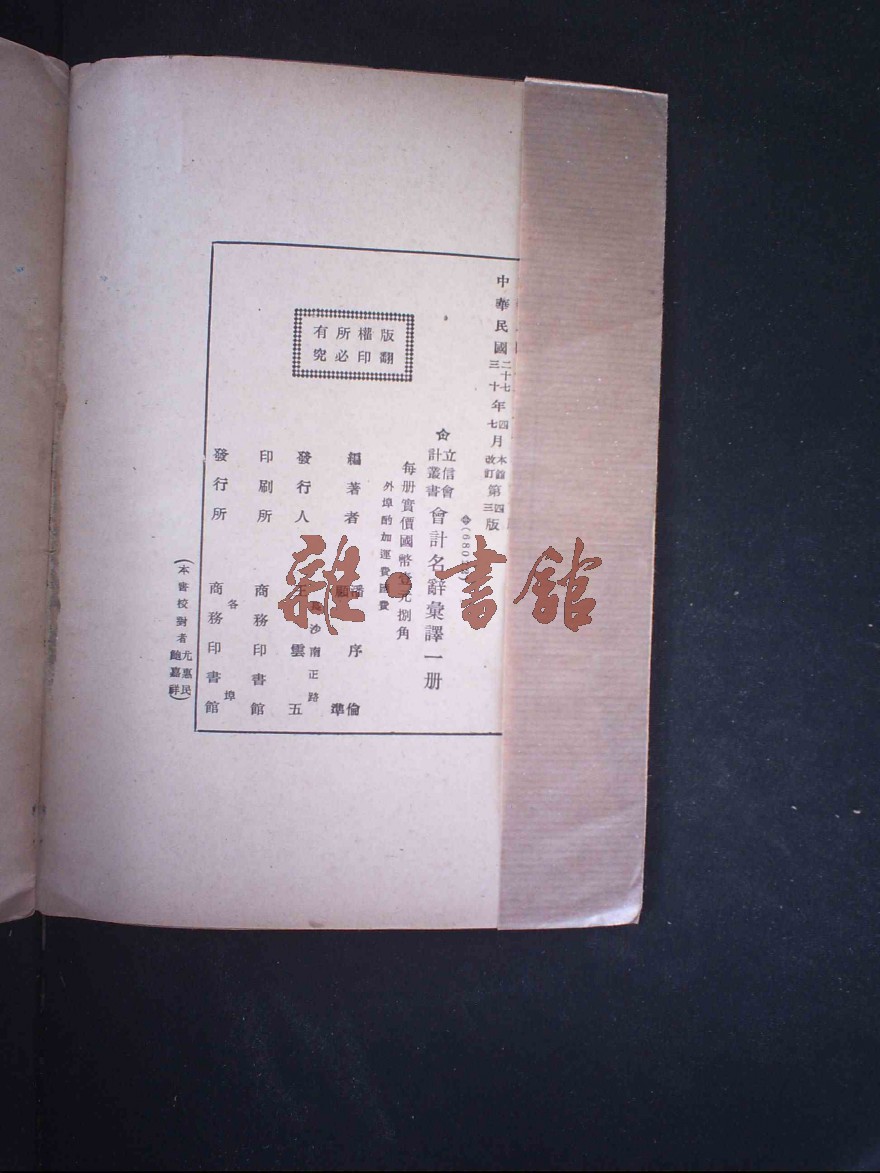 中華民國二十七年四月本館第四版
三十七改訂三
(680
立信會計叢書 會計名辭彙譯一册
每册實價國幣壹元捌角
外埠酌加運費匯費
版權所有
翻印必究
編著者 潘序倫
顧準
長沙南正路
發行人 王雲五
印刷所 商務印書館
各埠
發行所 商務印書館
(本書校對者尤惠民
鮑嘉祥)
雜·書館